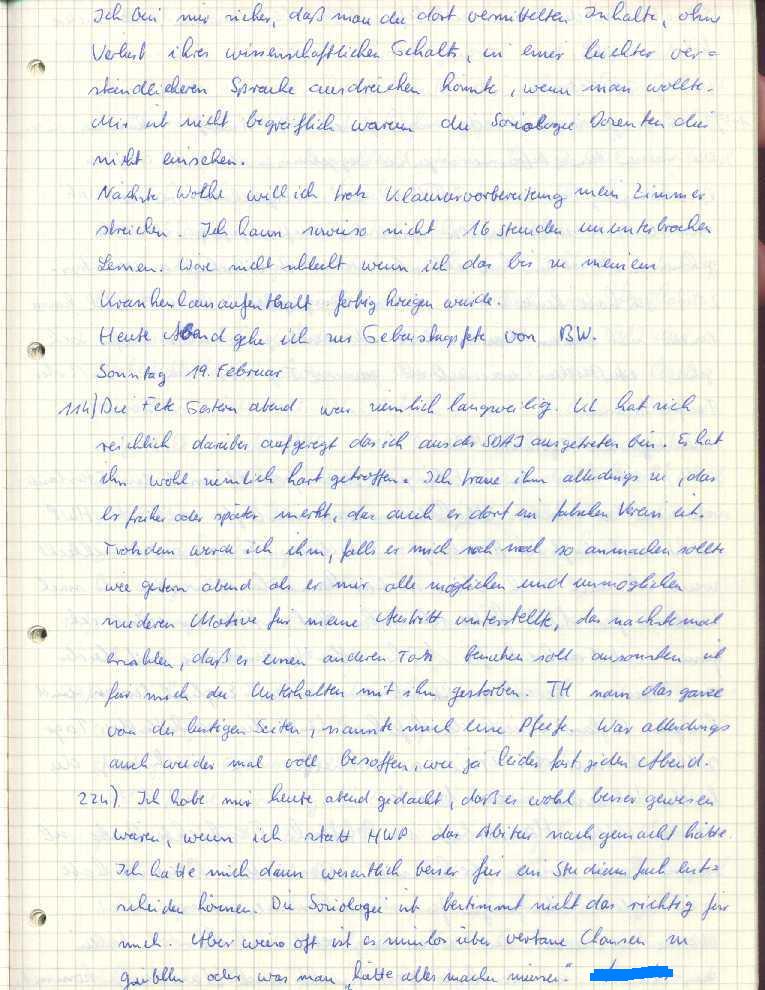 Ich bin mir sicher, daß man die dort vermittelten Inhalte, ohne
Verlust ihres wissenschaftlichen Gehalts, in einer leichter ver=
ständlicheren Sprache ausdrücken könnte, wenn man wollte.
Mir ist nicht begreiflich warum die Soziologie Dozenten dies
nicht einsehen.
Nächste Woche will ich trotz Klausurvorbereitung mein Zimmer
streichen. Ich kann sowieso nicht 16 stunden ununterbrochen
Lernen. Wäre nicht schlecht wenn ich das bis zu meinem
Krankenhausaufenthalt fertig kriegen würde.
Heute Abend gehe ich zur Geburtstagsfete von BW.
Sonntag 19. Februar
11h) Die Fete Gestern abend war ziemlich langweilig. hat sich
reichlich darüber aufgeregt das ich aus der SDAJ ausgetreten bin. Es hat
ihn wohl ziemlich hart getroffen. Ich traue ihm allerdings zu, das
er früher oder später merkt, das auch er dort im falschen Verein ist.
Trotzdem werde ich ihm, falls er mich noch mal so anmachen sollte
wie gestern abend als er mir alle möglichen und unmöglichen
niederen Motive für meine Austritt unterstellte, das nächste mal
erzählen, daß er einen anderen Ton soll ansonsten ist
für mich die Unterhalten mit ihm gestorben. TH nam das ganze
von der lustigen Seiten, nannte mich eine Pfeife. War allerdings
auch wieder mal voll besoffen, wie ja leider fast jeden Abend.
22h) Ich habe mir heute abend gedacht, daß es wohl besser gewesen
wären, wenn ich statt HWP das Abitur nachgemacht hätte.
Ich hätte mich dann wesentlich besser für ein Studium fach ent=
scheiden können. Die Soziologie ist bestimmt nicht das richtig für
mich. Aber wieso oft ist es sinnlos über vertane Chancen zu
grübeln oder was man „hätte alles machen müssen".